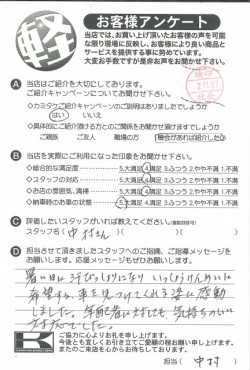 軽
お客様アンケート
当店では、お買い上げ頂いたお客様の声を可能
な限り現場に反映し、お客様により良い商品と
サービスを提供する事に努めています。
大変お手数ですが是非お声をお聞かせ下さい。
A 当店はご紹介を大切にしております。
ご紹介キャンペーンについてお聞かせ下さい。
◇カミタケご紹介キャンペーンのご説明はありましたでしょうか
はい いいえ
◇具体的にご紹介頂ける方とのご関係をお聞かせ頂けますでしょうか
ご親族 ご友人 職場の方 機会があれば紹介したい
B 当店を実際にご利用になった印象をお聞かせ下さい。
◇総合的な満足度 5.大満足 4.満足 3.ふつう 2.やや不満 1.不満
◇スタッフの対応 5.大満足 4.満足 3.ふつう 2.やや不満 1.不満
◇お店の雰囲気、清掃 5.大満足 4.満足 3.ふつう 2.やや不満 1.不満
◇納車時のお車の状態 5.大満足 4.満足 3.ふつう 2.やや不満 1.不満
C 辞退したいスタッフがいれば教えてください。
スタッフ名( 中村さん )
D 担当させて頂きましたスタッフへのご指摘、ご指導メッセージを
お願いします。応援メッセージもぜひお願いします。
暑い日に汗びっしょりになり いっしょうけんめいに
希望する、車を見つけてくれる姿に感動
しました。年配者に対しても 気持ちのいい
方でした。
ご協力に心よりお礼を申し上げます。
今後とも宜しくお引き立てご愛顧の程お願い申し上げます。
またのご来店を心からお待ちしております。
担当( 中村 )